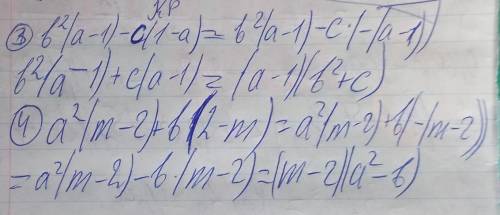 КР
③ b²(a-1)-c(1-a)=b²(a-1)-c·(-(a-1))
b²(a-1)+c(a-1)=(a-1)(b²+c)
④ a²(m-2)+b(2-m)=a²(m-2)+b(-(m-2))
=a²(m-2)-b·(m-2)=(m-2)(a²-b)